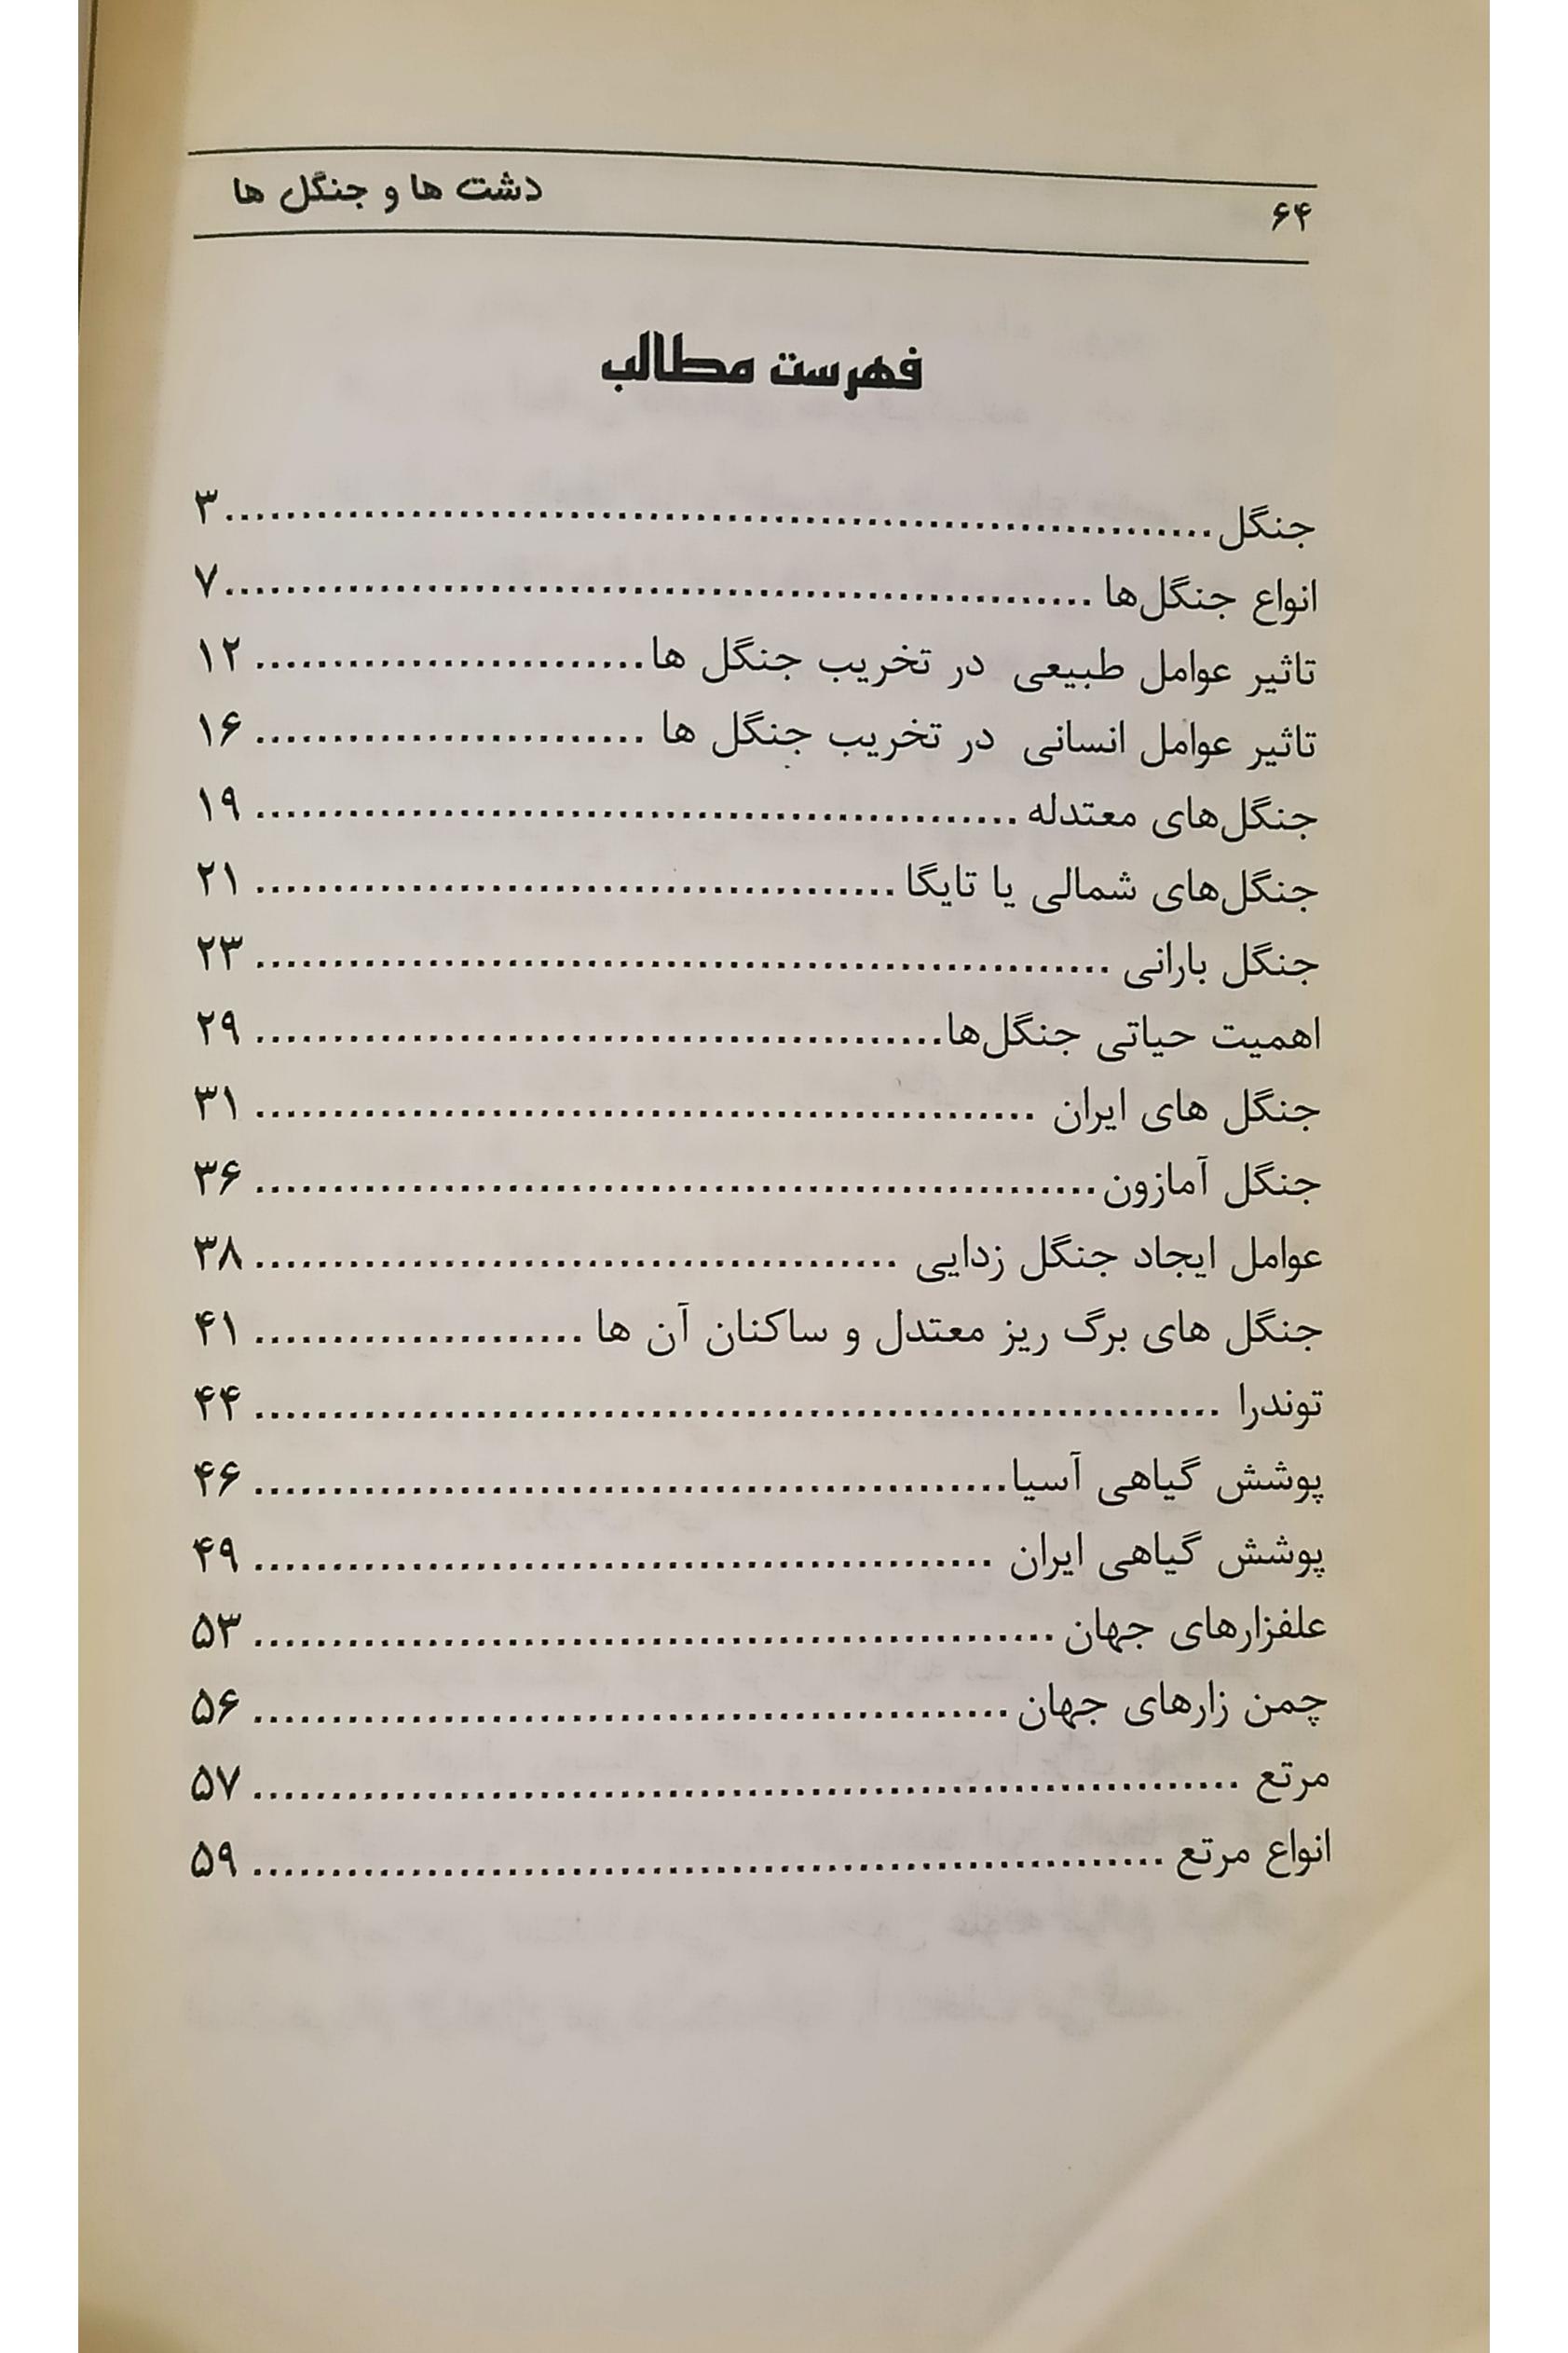 ۶۴ دشت ها و جنگل ها
فهرست مطالب
جنگل................................................................۳
انواع جنگل‌ها ........................................................۷
تاثیر عوامل طبیعی در تخریب جنگل ها......................... ۱۲
تاثیر عوامل انسانی در تخریب جنگل ها ......................... ۱۶
جنگل‌های معتدله................................................. ۱۹
جنگل‌های شمالی یا تایگا......................................... ۲۱
جنگل بارانی ....................................................... ۲۳
اهمیت حیاتی جنگل‌ها............................................ ۲۹
جنگل های ایران .................................................. ۳۱
جنگل آمازون...................................................... ۳۶
عوامل ایجاد جنگل زدایی ......................................... ۳۸
جنگل های برگ ریز معتدل و ساکنان آن ها ..................... ۴۱
توندرا .............................................................. ۴۴
پوشش گیاهی آسیا................................................ ۴۶
پوشش گیاهی ایران ............................................... ۴۹
علفزارهای جهان................................................... ۵۳
چمن زارهای جهان................................................ ۵۶
مرتع ............................................................... ۵۷
انواع مرتع .......................................................... ۵۹